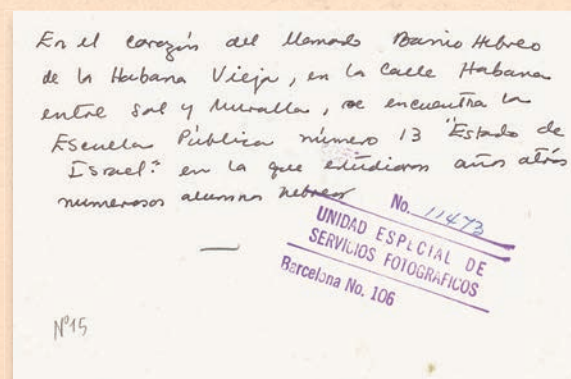 En el corazón del llamado Barrio Hebreo
de la Habana Vieja, en la Calle Habana
entre Sol y Muralla, se encuentra la
Escuela Pública número 13 "Estado de
Israel" en la que estudiaron años atrás
numerosos alumnos hebreos
No. 11473
UNIDAD ESPECIAL DE
SERVICIOS FOTOGRAFICOS
Barcelona No. 106
Nº15